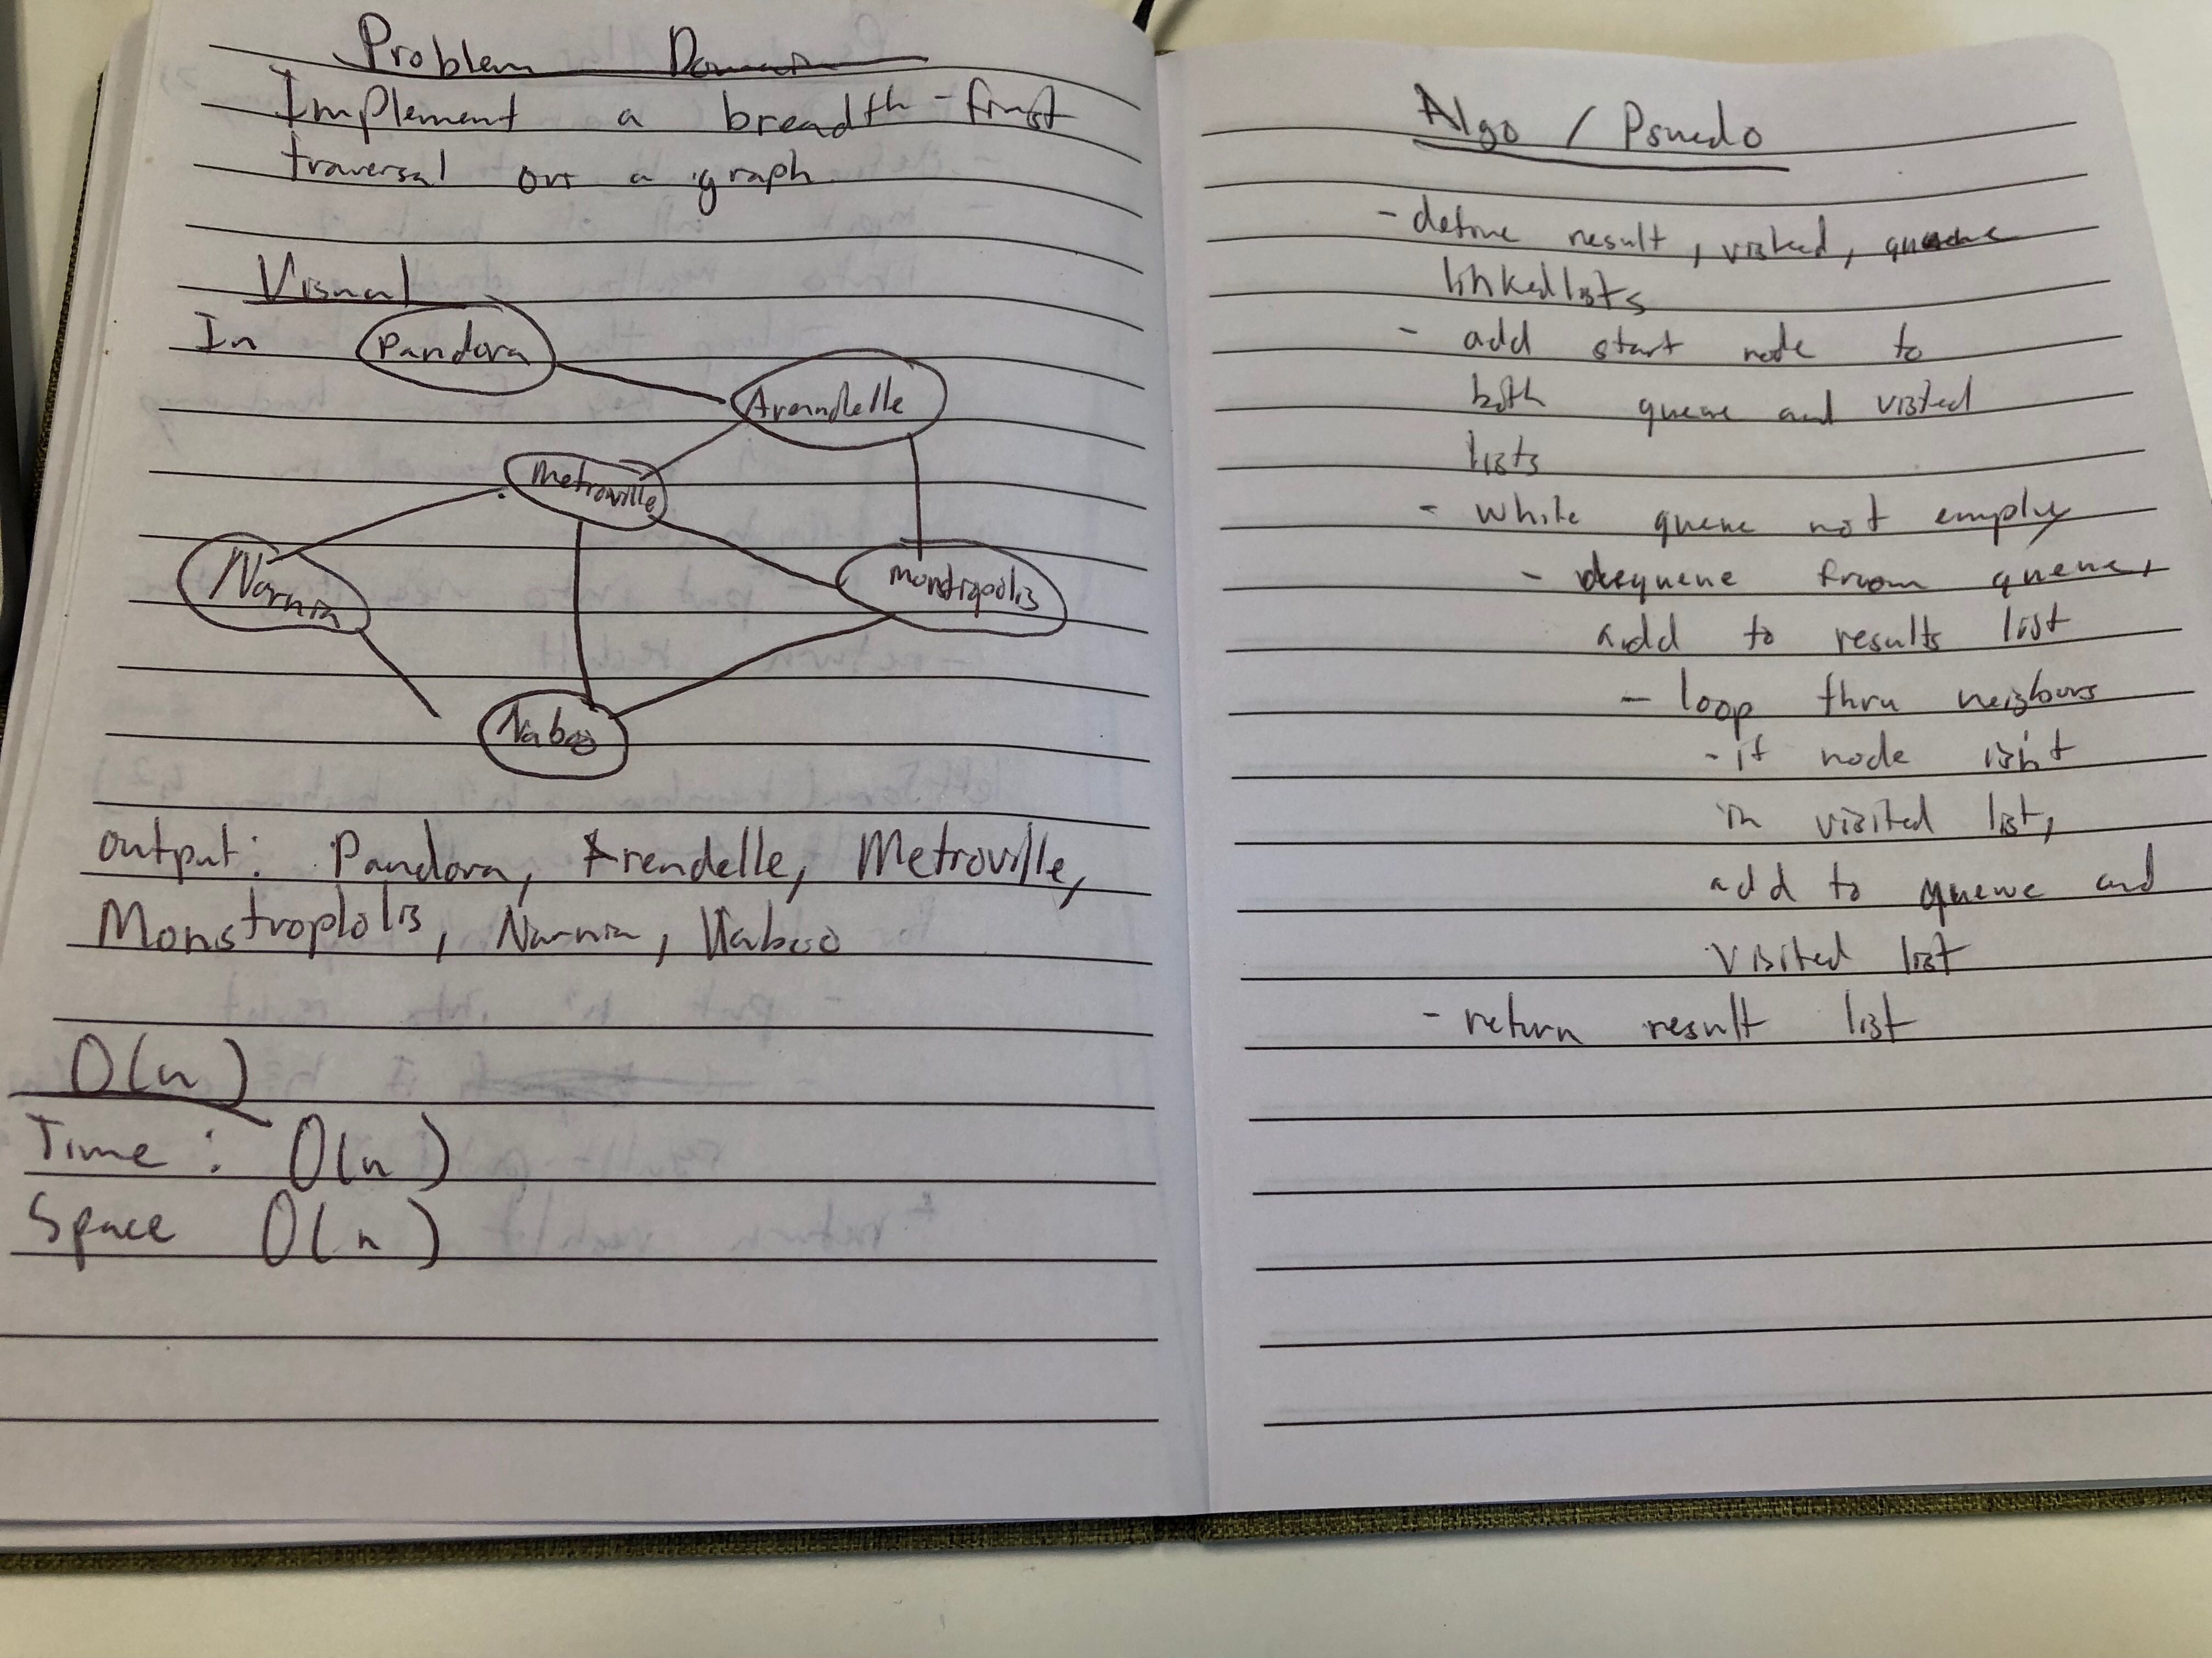 Problem Domain
Implement a breadth-first
traversal on a graph
Visual
In
Pandora
Arendelle
Metroville
Narnia
Monstropolis
Naboo
output: Pandora, Arendelle, Metroville,
Monstroplolis, Narnia, Naboo
O(n)
Time: O(n)
Space O(n)
Algo / Psuedo
- define result, visited, queue
linkedlists
- add start node to
both queue and visited
lists
- while queue not empty
- dequeue from queue,
add to results list
- loop thru neighbours
- if node isn't
in visited list,
add to queue and
visited list
- return result list